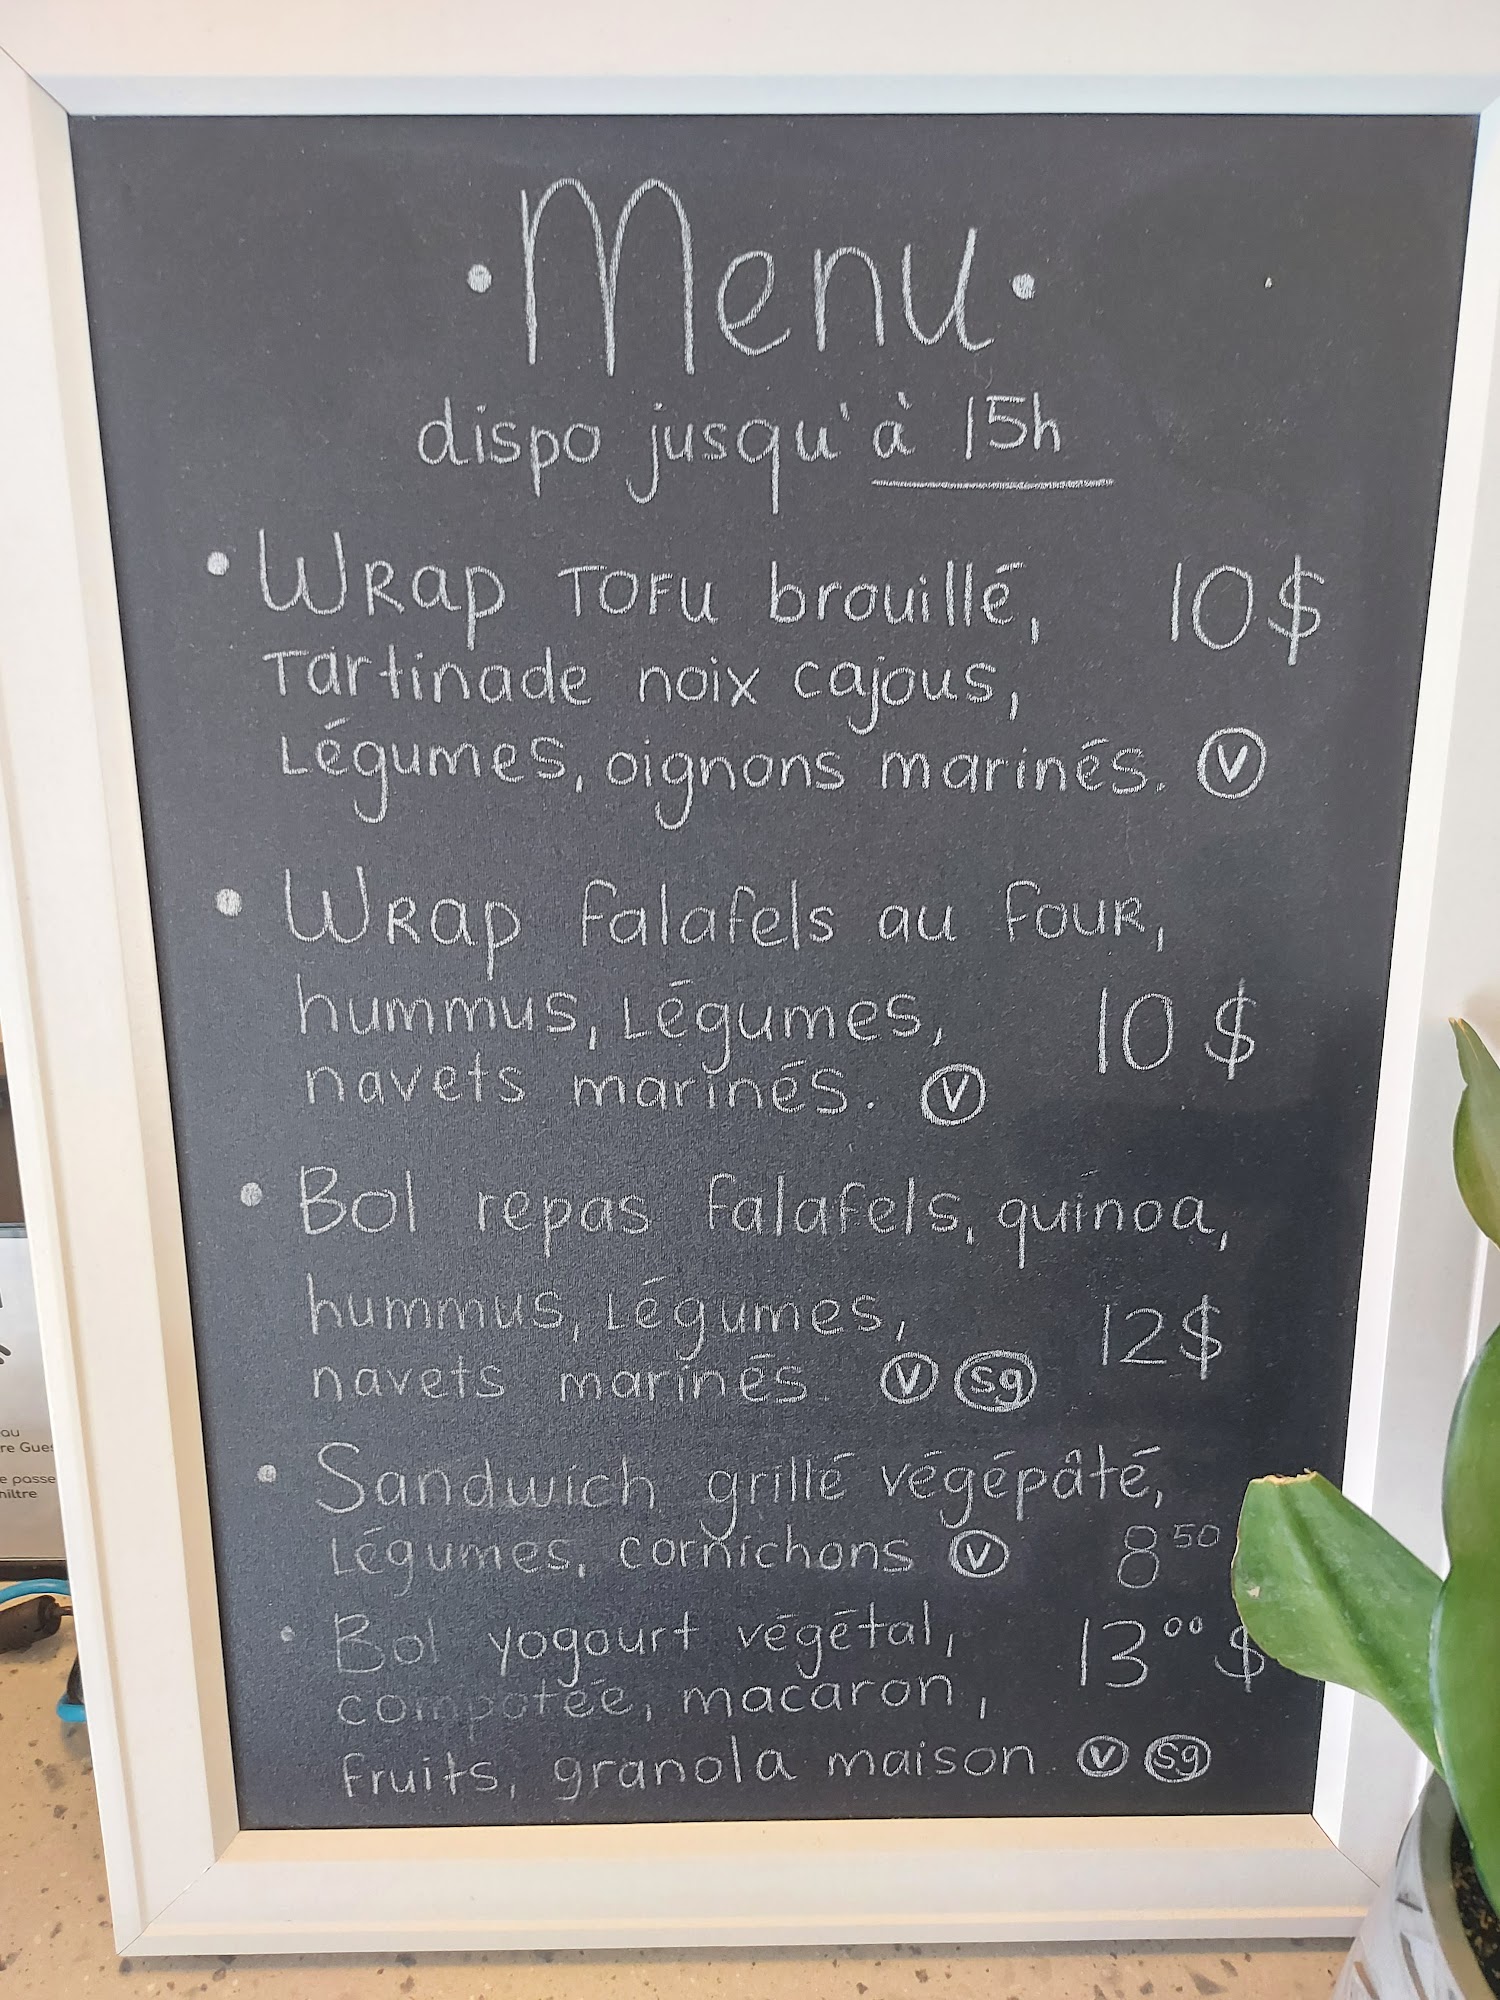 • Menu •
dispo jusqu'à 15h
• Wrap Tofu brouillé, 10$
Tartinade noix cajous,
Légumes, oignons marinés. Ⓥ
• Wrap falafels au four,
hummus, Légumes, 10 $
navets marinés. Ⓥ
• Bol repas falafels, quinoa,
hummus, Légumes, 12$
navets marinés. Ⓥ sg
• Sandwich grillé végépâté,
Légumes, cornichons Ⓥ 8⁵⁰
• Bol yogourt végétal, 13⁰⁰ $
compotée, macaron,
fruits, granola maison. Ⓥ sg
au
e passe